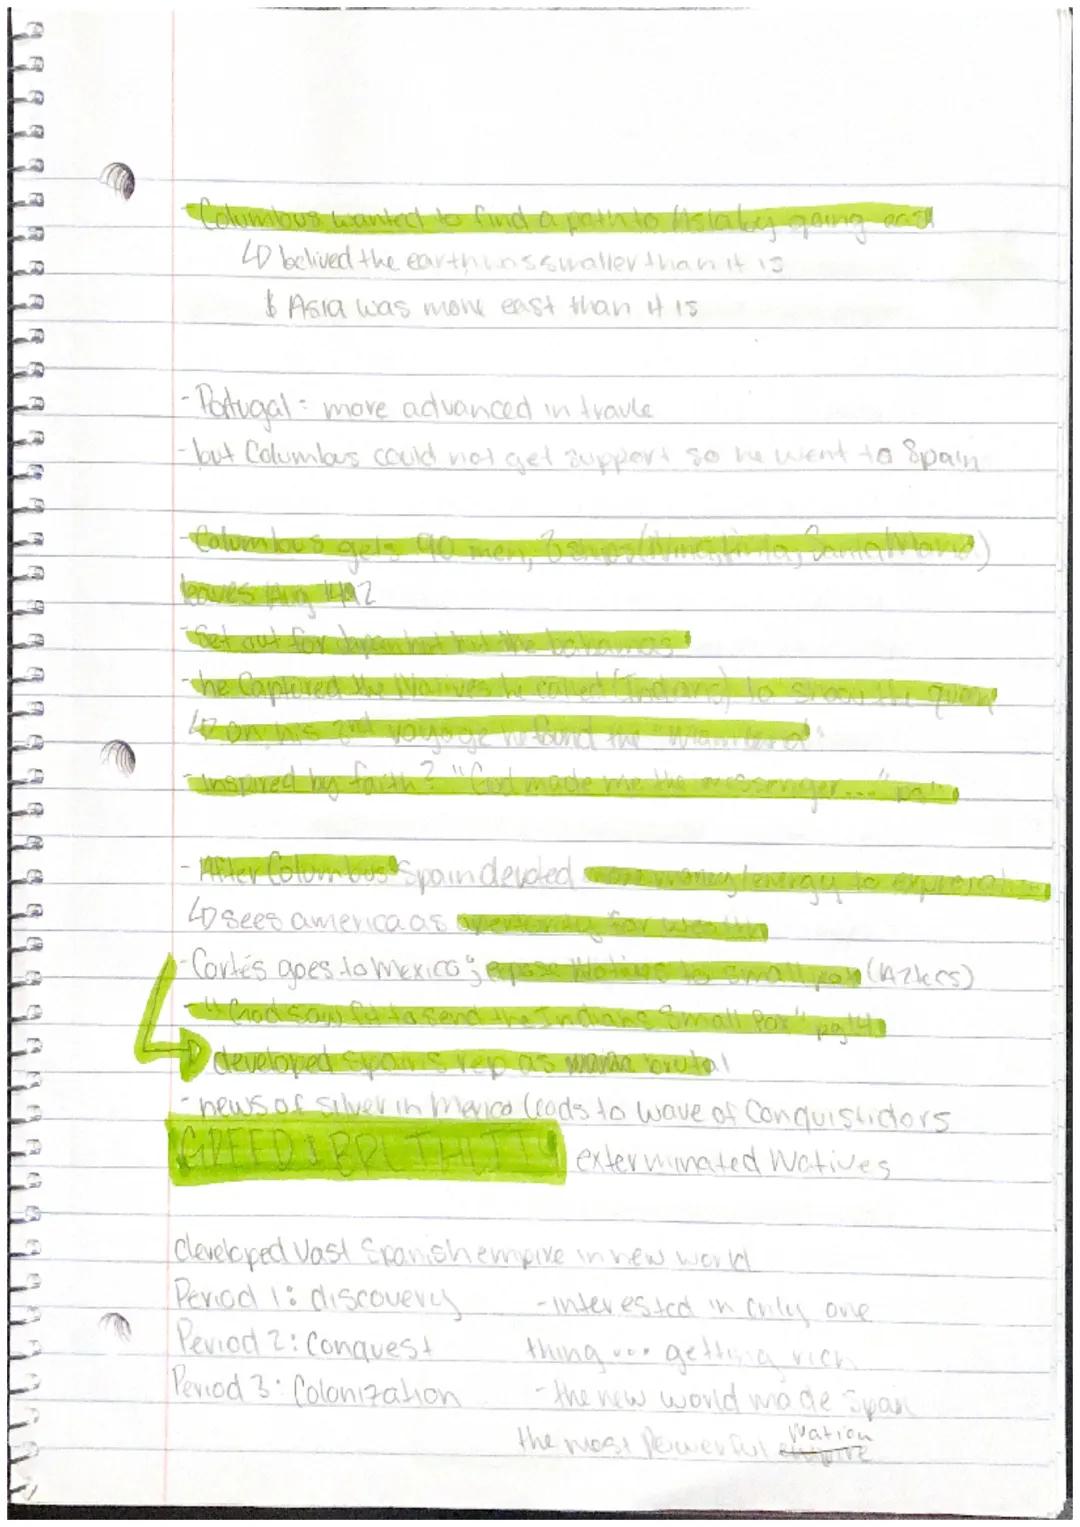 - Columbus wanted to find a path to Asia by going east
↳ belived the earth was smaller than it is
& Asia was more east than it is
- Portugal = more advanced in travle
- but Columbus could not get support so he went to Spain
- Columbus gets 90 men, 3 ships (Nina, Pinta, Santa Maria)
leaves Aug 1492
- Set out for Japan but hit the bahamas
- he Captured the Natives he called (Indians) to show the queen
↳ on his voyage he found the "mainland"
- inspired by faith? "God made me the messenger..."
- After Columbus Spain devoted more money/energy to
↳ sees america as for wealth
- Cortés goes to Mexico; expose Natives to smallpox (Aztecs)
- "God saw fit to send the Indians Small Pox" pg 14
developed Spain's rep as brutal
- news of silver in Mexico leads to wave of Conquistidors
GREED & BRUTALITY exterminated Natives
developed Vast Spanish empire in new world
Period 1: discovery - interested in only one
Period 2: Conquest thing ... getting rich
Period 3: Colonization - the new world made Spain
the most Powerful Nation